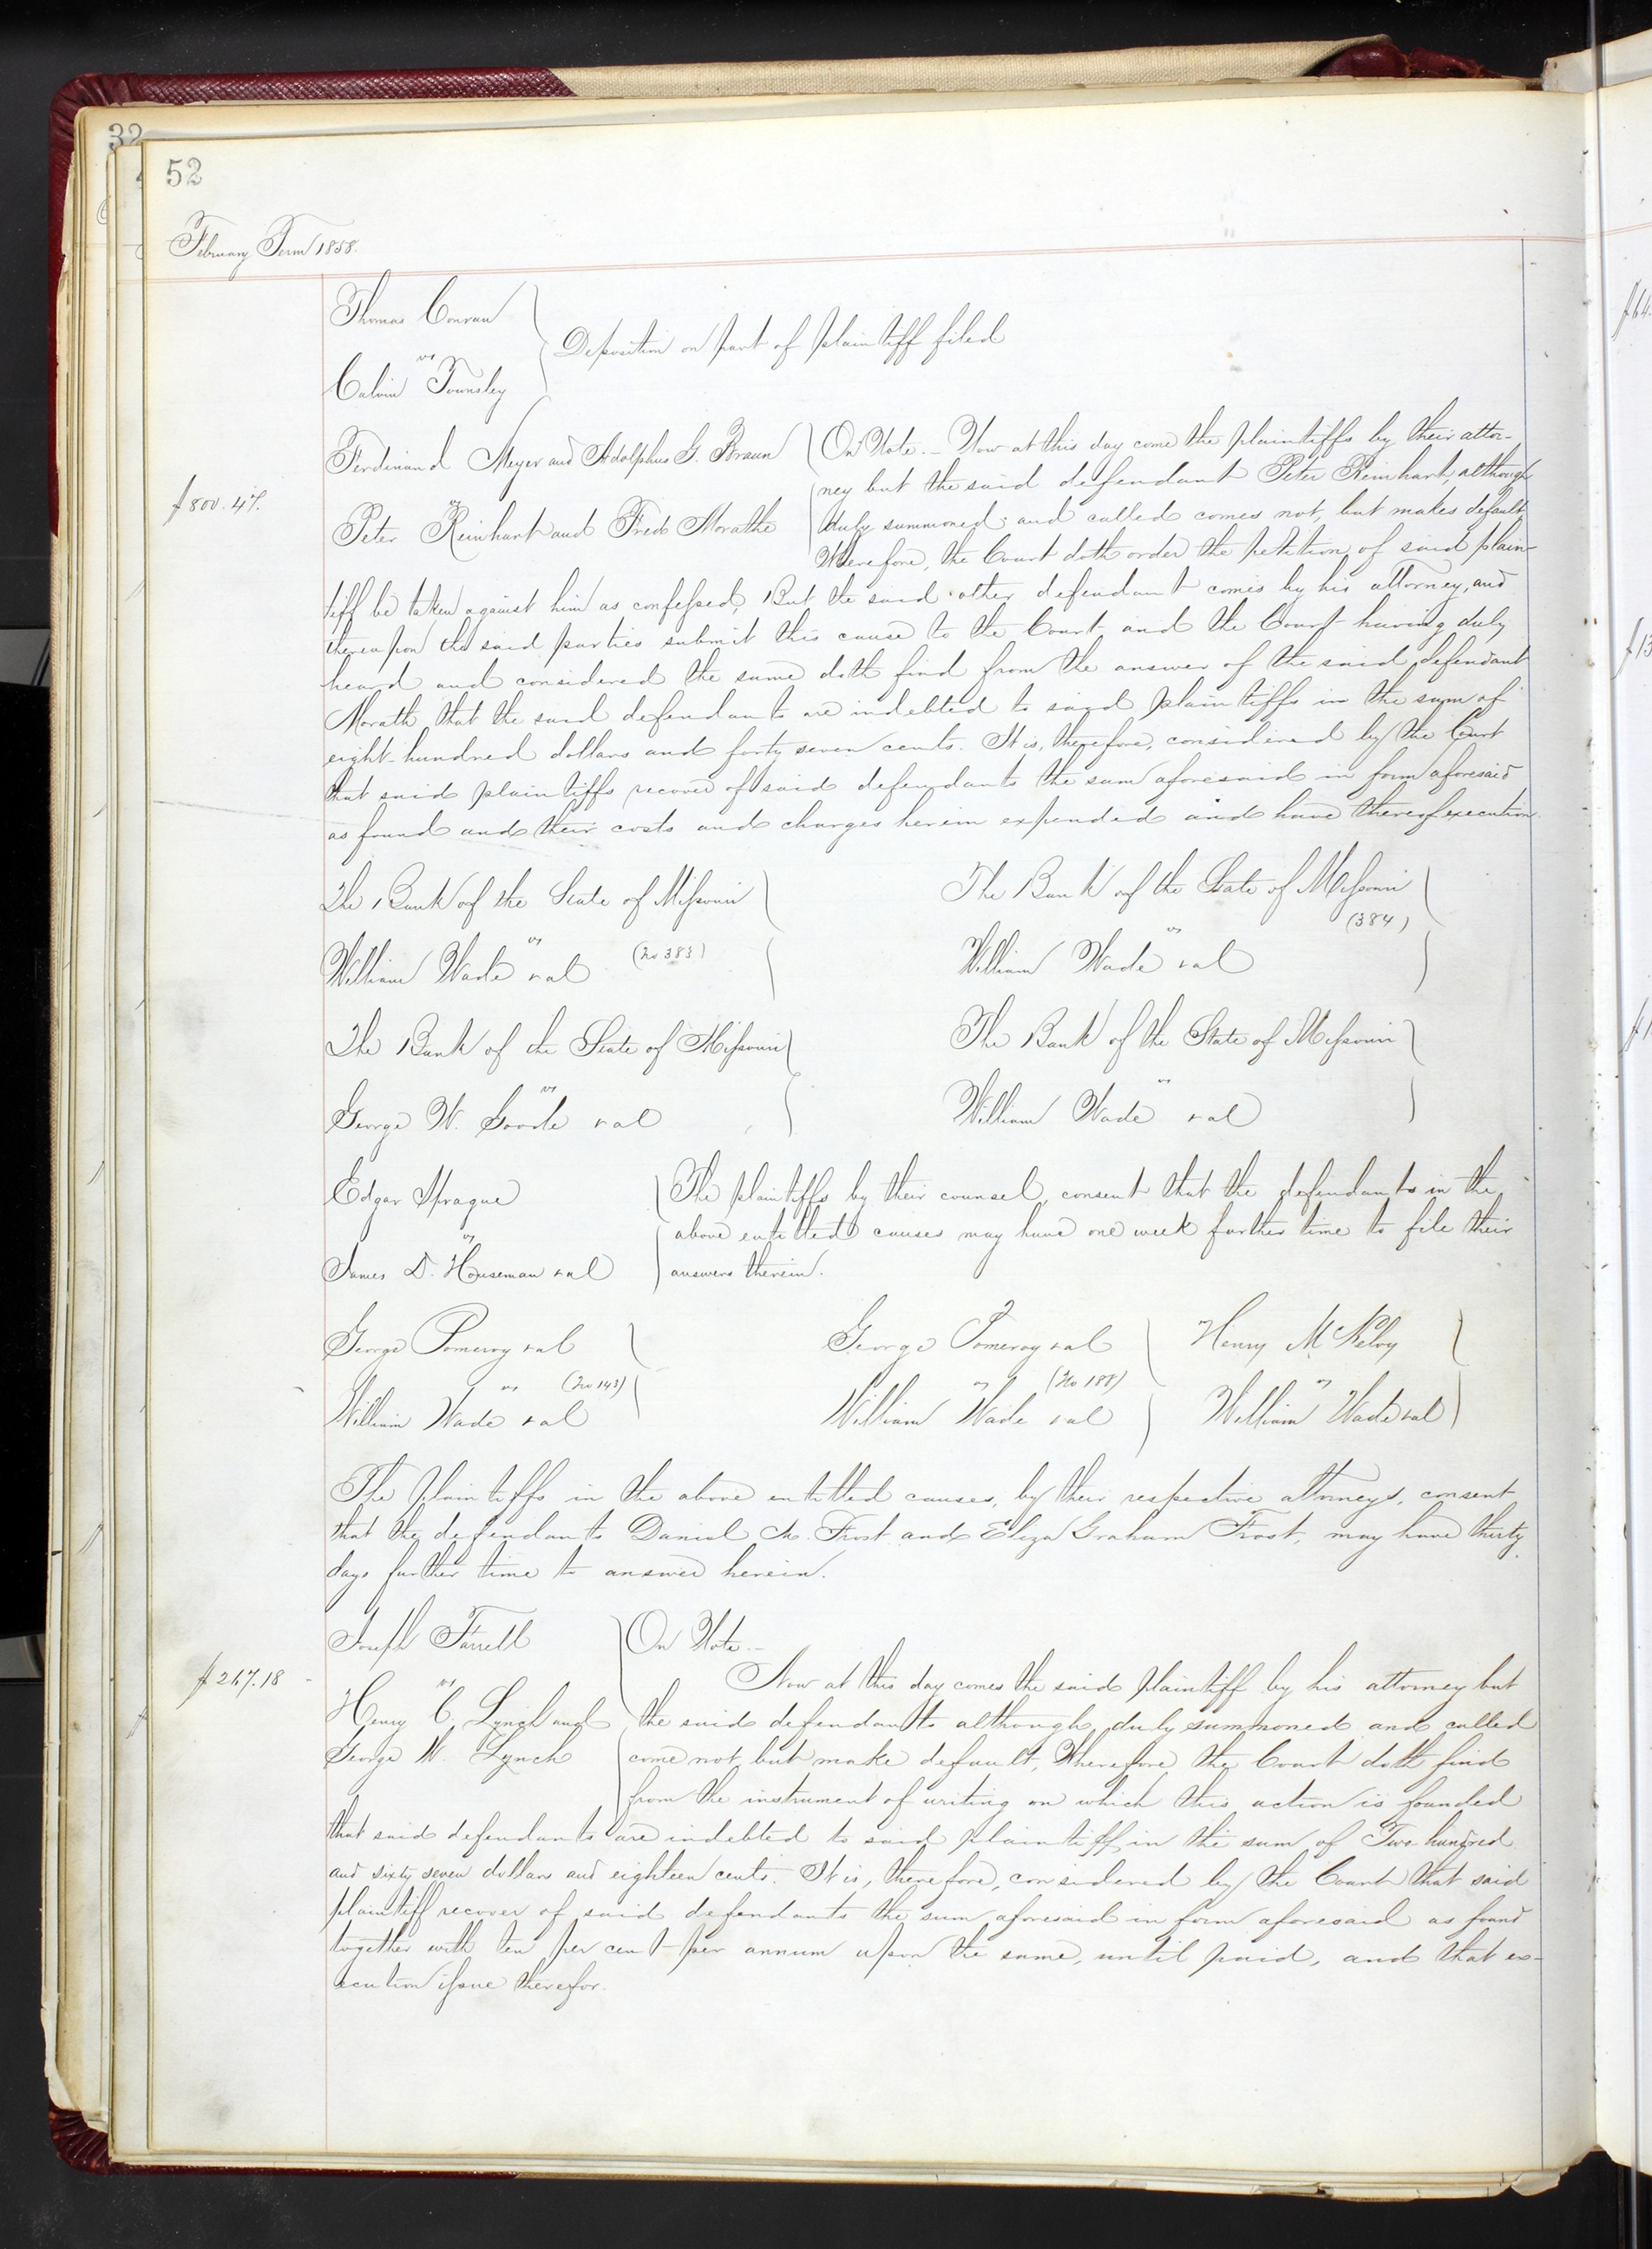 32
52
February Term 1858.
Thomas Conran
vs
Calvin Townsley
Deposition on part of plaintiff filed
Ferdinand Meyer and Adolphus G. Braun
vs
Peter Reinhart and Fredk Morathe
$800.47.
On Note. Now at this day come the plaintiffs by their attor-
ney but the said defendant Peter Reinhart, although
duly summoned and called comes not, but makes default,
Wherefore, the Court doth order the petition of said plain-
tiff be taken against him as confessed, But the said other defendant comes by his attorney, and
thereupon the said parties submit this cause to the Court and the Court having duly
heard and considered the same doth find from the answer of the said defendant
Morath that the said defendants are indebted to said plaintiffs in the sum of
eight hundred dollars and forty seven cents. It is, therefore, considered by the Court
that said plaintiffs recover of said defendants the sum aforesaid in form aforesaid
as found and their costs and charges herein expended and have thereof execution.
The Bank of the State of Missouri
vs (No 383)
William Wade & al
The Bank of the State of Missouri
(384)
vs
William Wade & al
The Bank of the State of Missouri
vs
George W. Goode & al
The Bank of the State of Missouri
vs
William Wade & al
Edgar Sprague
vs
James D. Houseman & al
The plaintiffs by their counsel, consent that the defendants in the
above entitled causes may have one week further time to file their
answers therein.
George Pomeroy & al
vs (No 143)
William Wade & al
George Pomeroy & al
vs (No 188)
William Wade & al
Henry McKelvy
vs
William Wade & al
The plaintiffs in the above entitled causes, by their respective attorneys, consent
that the defendants Daniel M. Frost and Eliza Graham Frost, may have thirty
days further time to answer herein.
Joseph Farrell
vs
Henry C. Lynch and
George W. Lynch
$267.18
On Note.
Now at this day comes the said plaintiff by his attorney but
the said defendants although duly summoned and called
come not, but make default, Wherefore the Court doth find
from the instrument of writing on which this action is founded
that said defendants are indebted to said plaintiff, in the sum of Two hundred
and sixty seven dollars and eighteen cents. It is, therefore, considered by the Court that said
plaintiff recover of said defendants the sum aforesaid in form aforesaid as found
together with ten per cent per annum upon the same, until paid, and that ex-
ecution issue therefor.